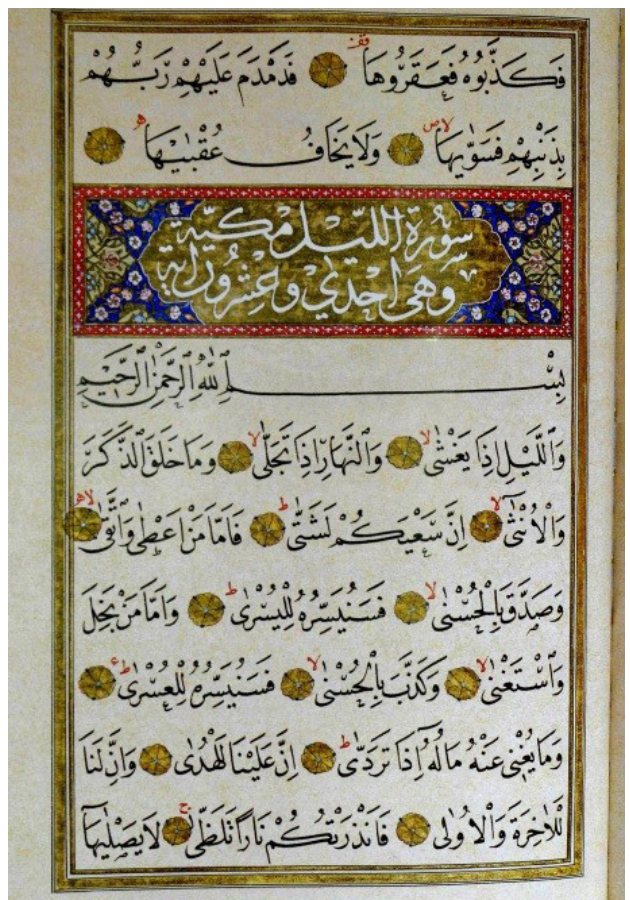 فَكَذَّبُوهُ فَعَقَرُوهَا ۙ فَدَمْدَمَ عَلَيْهِمْ رَبُّهُمْ
بِذَنْبِهِمْ فَسَوّٰيهَا ۙ وَلَا يَخَافُ عُقْبٰيهَا
سُورَةُ اللَّيْلِ مَكِّيَّةٌ
وَهِيَ اِحْدٰي وَعِشْرُونَ اٰيَة
بِسْمِ اللّٰهِ الرَّحْمٰنِ الرَّحِيمِ
وَالَّيْلِ اِذَا يَغْشٰى ۙ وَالنَّهَارِ اِذَا تَجَلّٰى ۙ وَمَا خَلَقَ الذَّكَرَ
وَالْاُنْثٰى ۙ اِنَّ سَعْيَكُمْ لَشَتّٰى ۜ فَاَمَّا مَنْ اَعْطٰى وَاتَّقٰى ۙ
وَصَدَّقَ بِالْحُسْنٰى ۙ فَسَنُيَسِّرُهُ لِلْيُسْرٰى ۜ وَاَمَّا مَنْ بَخِلَ
وَاسْتَغْنٰى ۙ وَكَذَّبَ بِالْحُسْنٰى ۙ فَسَنُيَسِّرُهُ لِلْعُسْرٰى ۜ
وَمَا يُغْنِى عَنْهُ مَالُهُٓ اِذَا تَرَدّٰى ۜ اِنَّ عَلَيْنَا لَلْهُدٰى وَاِنَّ لَنَا
لَلْاٰخِرَةَ وَالْاُولٰى فَاَنْذَرْتُكُمْ نَارًا تَلَظّٰى ۚ لَا يَصْلٰيهَٓا